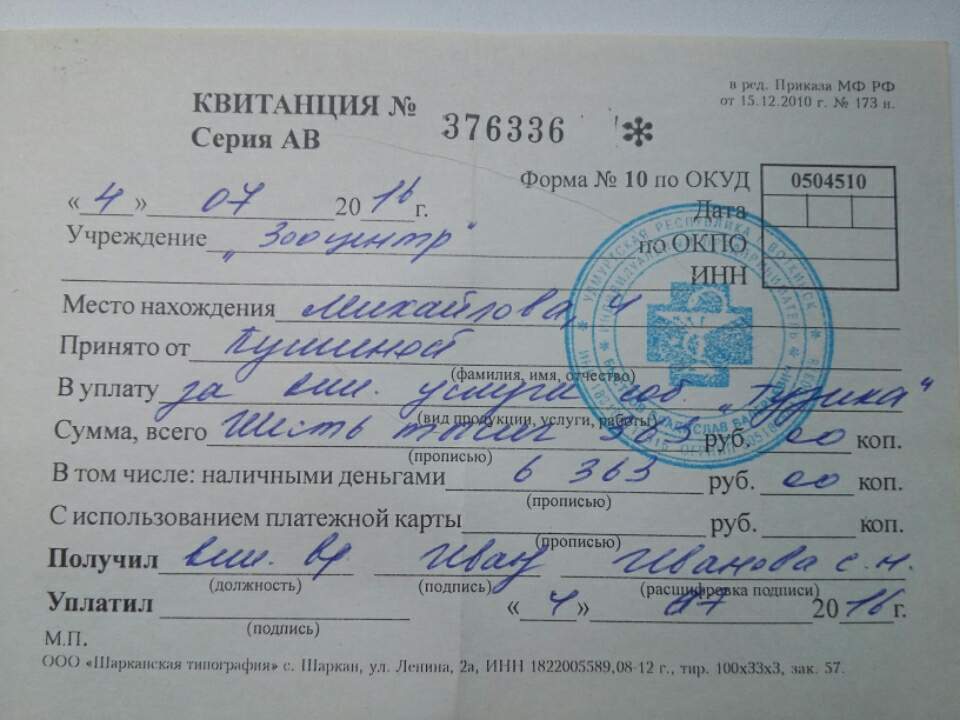 в ред. Приказа МФ РФ
от 15.12.2010 г. № 173 н.
КВИТАНЦИЯ № 376336 *
Серия АВ
Форма № 10 по ОКУД 0504510
« 4 » 07 2016 г.
Дата
Учреждение „Зооцентр"
по ОКПО
ИНН
Место нахождения Михайлова, 4
Принято от
(фамилия, имя, отчество)
В уплату за вет. услуги соб. „Тузика"
(вид продукции, услуги, работы)
Сумма, всего Шесть тысяч 363 руб. 00 коп.
(прописью)
В том числе: наличными деньгами 6 363 руб. 00 коп.
(прописью)
С использованием платежной карты руб. коп.
(прописью)
Получил вет. вр Иван Иванова С. Н.
(должность) (подпись) (расшифровка подписи)
Уплатил « 4 » 07 2016 г.
(подпись)
М.П.
ООО «Шарканская типография» с. Шаркан, ул. Ленина, 2а, ИНН 1822005589,08-12 г., тир. 100х33х3, зак. 57.
УДМУРТСКАЯ РЕСПУБЛИКА Г. ВОТКИНСК
ИНДИВИДУАЛЬНЫЙ ПРЕДПРИНИМАТЕЛЬ